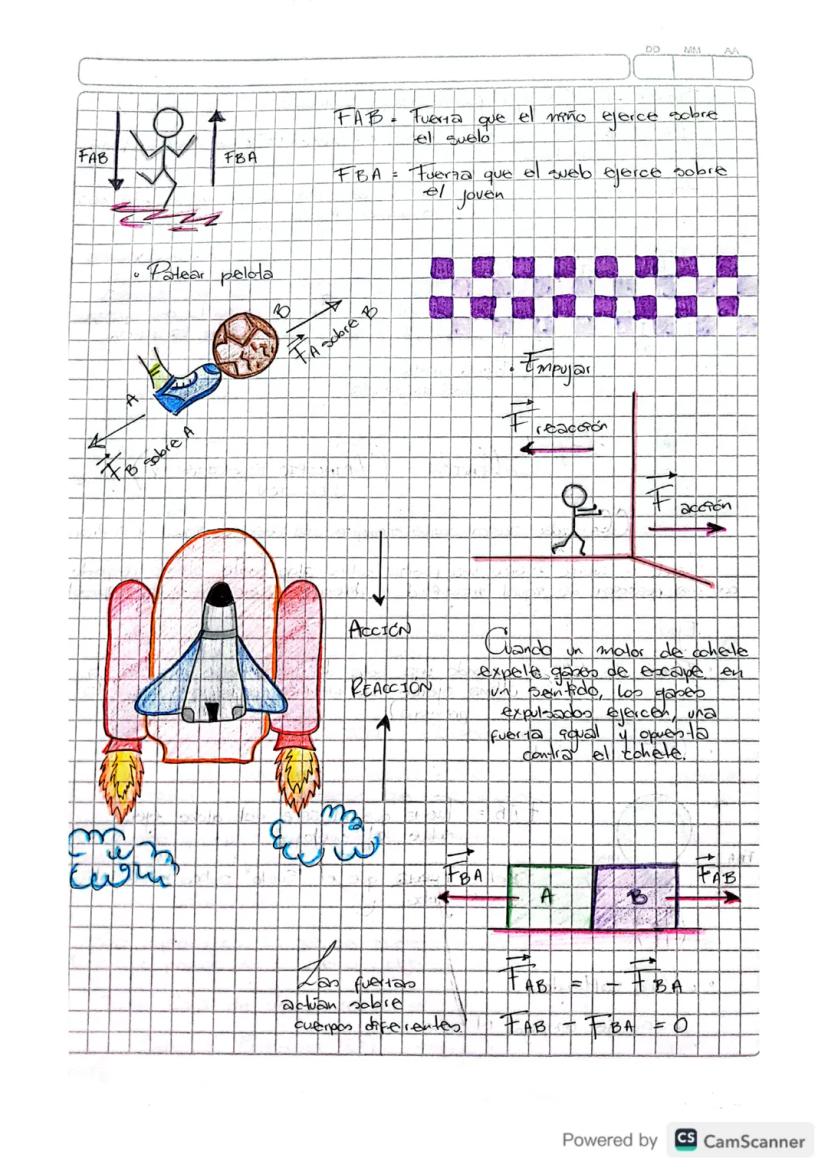 DD MM AA
FAB = Fuerza que el niño ejerce sobre
el suelo
FAB
FBA
FBA = Fuerza que el suelo ejerce sobre
el joven
• Patear pelota
B
F A sobre B
A
F B sobre A
• Empujar
F reacción
F acción
ACCIÓN
REACCIÓN
Cuando un motor de cohete
expele gases de escape en
un sentido, los gases
expulsados ejercen una
fuerza igual y opuesta
contra el cohete.
F BA
F AB
A
B
Las fuerzas
actúan sobre
cuerpos diferentes
F AB = - F BA
F AB - F BA = 0
Powered by CS CamScanner